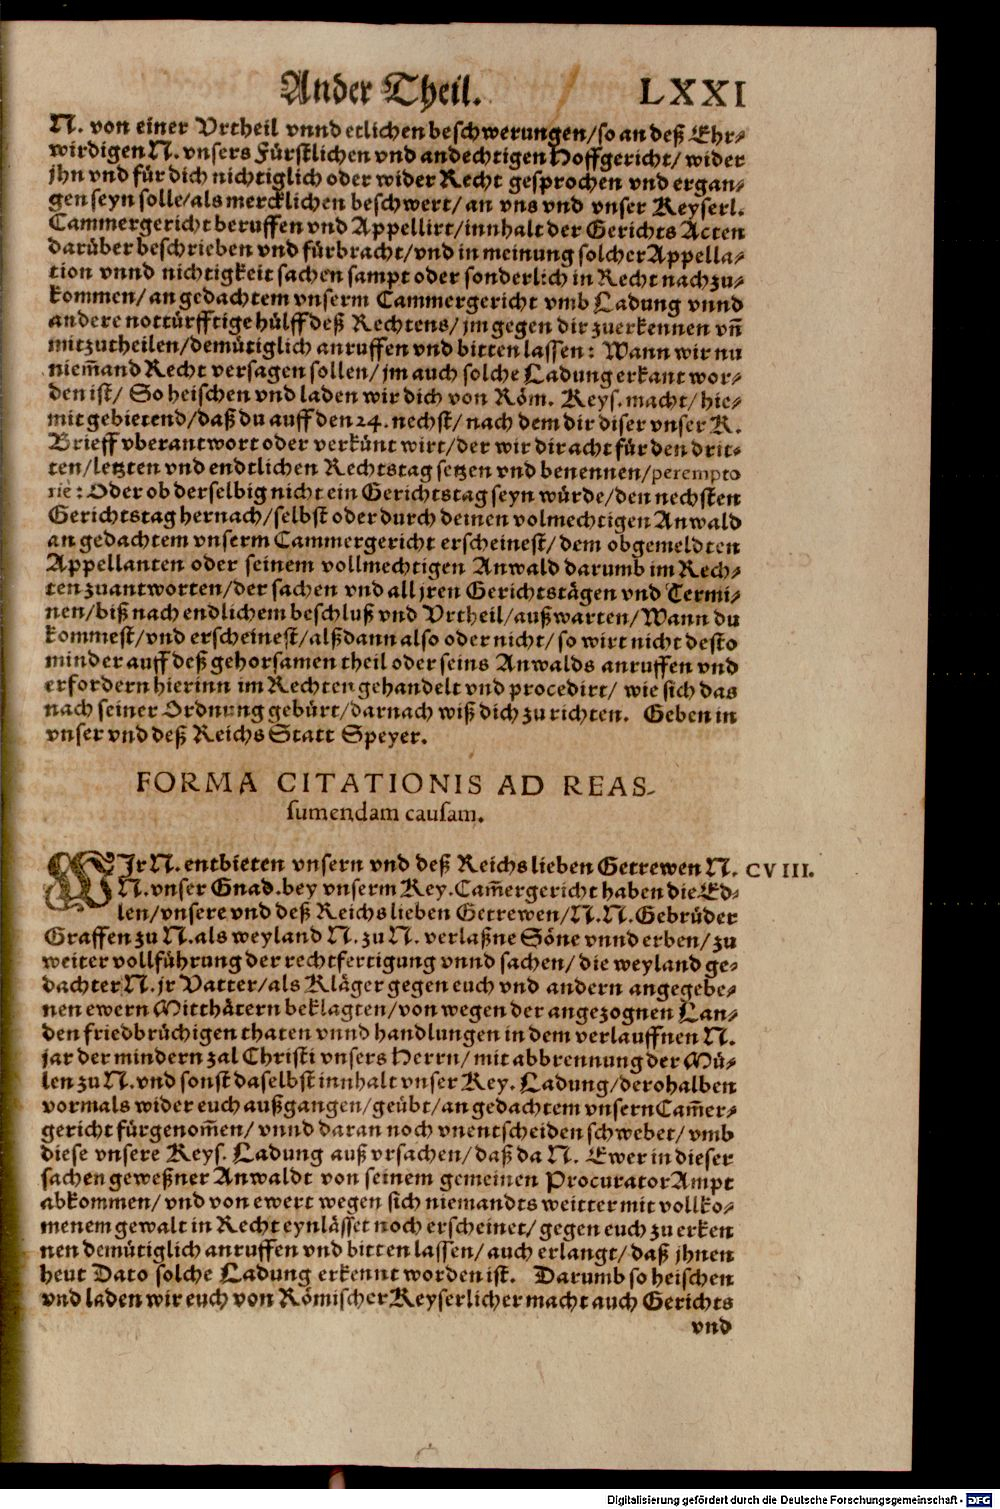 Ander Theil. LXXI
N. von einer Vrtheil vnnd etlichen beschwerungen/so an deß Ehr⸗
wirdigen N. vnsers Fürstlichen vnd andechtigen Hoffgericht/ wider
jhn vnd für dich nichtiglich oder wider Recht gesprochen vnd ergan⸗
gen seyn solle/als mercklichen beschwert/ an vns vnd vnser Keyserl.
Cammergericht beruffen vnd Appellirt/innhalt der Gerichts Acten
darüber beschrieben vnd fürbracht/vnd in meinung solcher Appella⸗
tion vnnd nichtigkeit sachen sampt oder sonderlich in Recht nachzu⸗
kommen/ an gedachtem vnserm Cammergericht vmb Ladung vnnd
andere nottürfftige hülff deß Rechtens/ jm gegen dir zuerkennen vñ
mitzutheilen/demütiglich anruffen vnd bitten lassen: Wann wir nu
niem̃and Recht versagen sollen/ jm auch solche Ladung erkant wor⸗
den ist/ So heischen vnd laden wir dich von Röm. Keys. macht/ hie⸗
mit gebietend/daß du auff den 24. nechst/ nach dem dir diser vnser K.
Brieff vberantwort oder verkünt wirt/der wir dir acht für den drit⸗
ten/letzten vnd endtlichen Rechtstag setzen vnd benennen/perempto
riè: Oder ob derselbig nicht ein Gerichtstag seyn würde/den nechsten
Gerichtstag hernach/selbst oder durch deinen volmechtigen Anwald
an gedachtem vnserm Cammergericht erscheinest/ dem obgemeldten
Appellanten oder seinem vollmechtigen Anwald darumb im Rech⸗
ten zuantworten/der sachen vnd all jren Gerichtstägen vnd Termi⸗
nen/biß nach endlichem beschluß vnd Vrtheil/außwarten/Wann du
kommest/vnd erscheinest/alßdann also oder nicht/ so wirt nicht desto
minder auff deß gehorsamen theil oder seins Anwalds anruffen vnd
erfordern hierinn im Rechten gehandelt vnd procedirt/ wie sich das
nach seiner Ordnung gebürt/darnach wiß dich zu richten. Geben in
vnser vnd deß Reichs Statt Speyer.
FORMA CITATIONIS AD REAS-
sumendam causam.
WJr N. entbieten vnsern vnd deß Reichs lieben Getrewen N. CVIII.
N. vnser Gnad. bey vnserm Key. Cam̃ergericht haben die Ed⸗
len/vnsere vnd deß Reichs lieben Getrewen/N. N. Gebrüder
Graffen zu N. als weyland N. zu N. verlaßne Söne vnnd erben/ zu
weiter vollführung der rechtfertigung vnnd sachen/ die weyland ge⸗
dachter N. jr Vatter/als Kläger gegen euch vnd andern angegebe⸗
nen ewern Mitthätern beklagten/von wegen der angezognen Lan⸗
den friedbrüchigen thaten vnnd handlungen in dem verlauffnen N.
jar der mindern zal Christi vnsers Herrn/ mit abbrennung der Mü⸗
len zu N. vnd sonst daselbst innhalt vnser Key. Ladung/derohalben
vormals wider euch außgangen/geübt/an gedachtem vnsern Cam̃er⸗
gericht fürgenom̃en/ vnnd daran noch vnentscheiden schwebet/ vmb
diese vnsere Keys. Ladung auß vrsachen/ daß da N. Ewer in dieser
sachen geweßner Anwaldt von seinem gemeinen Procurator Ampt
abkommen/ vnd von ewert wegen sich niemandts weitter mit vollko⸗
menem gewalt in Recht eynlässet noch erscheinet/ gegen euch zu erken
nen demütiglich anruffen vnd bitten lassen/ auch erlangt/ daß jhnen
heut Dato solche Ladung erkennt worden ist. Darumb so heischen
vnd laden wir euch von Römischer Keyserlicher macht auch Gerichts
vnd
Digitalisierung gefördert durch die Deutsche Forschungsgemeinschaft - DFG